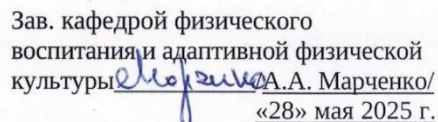 Зав. кафедрой физического
воспитания и адаптивной физической
культуры А.А. Марченко/
«28» мая 2025 г.